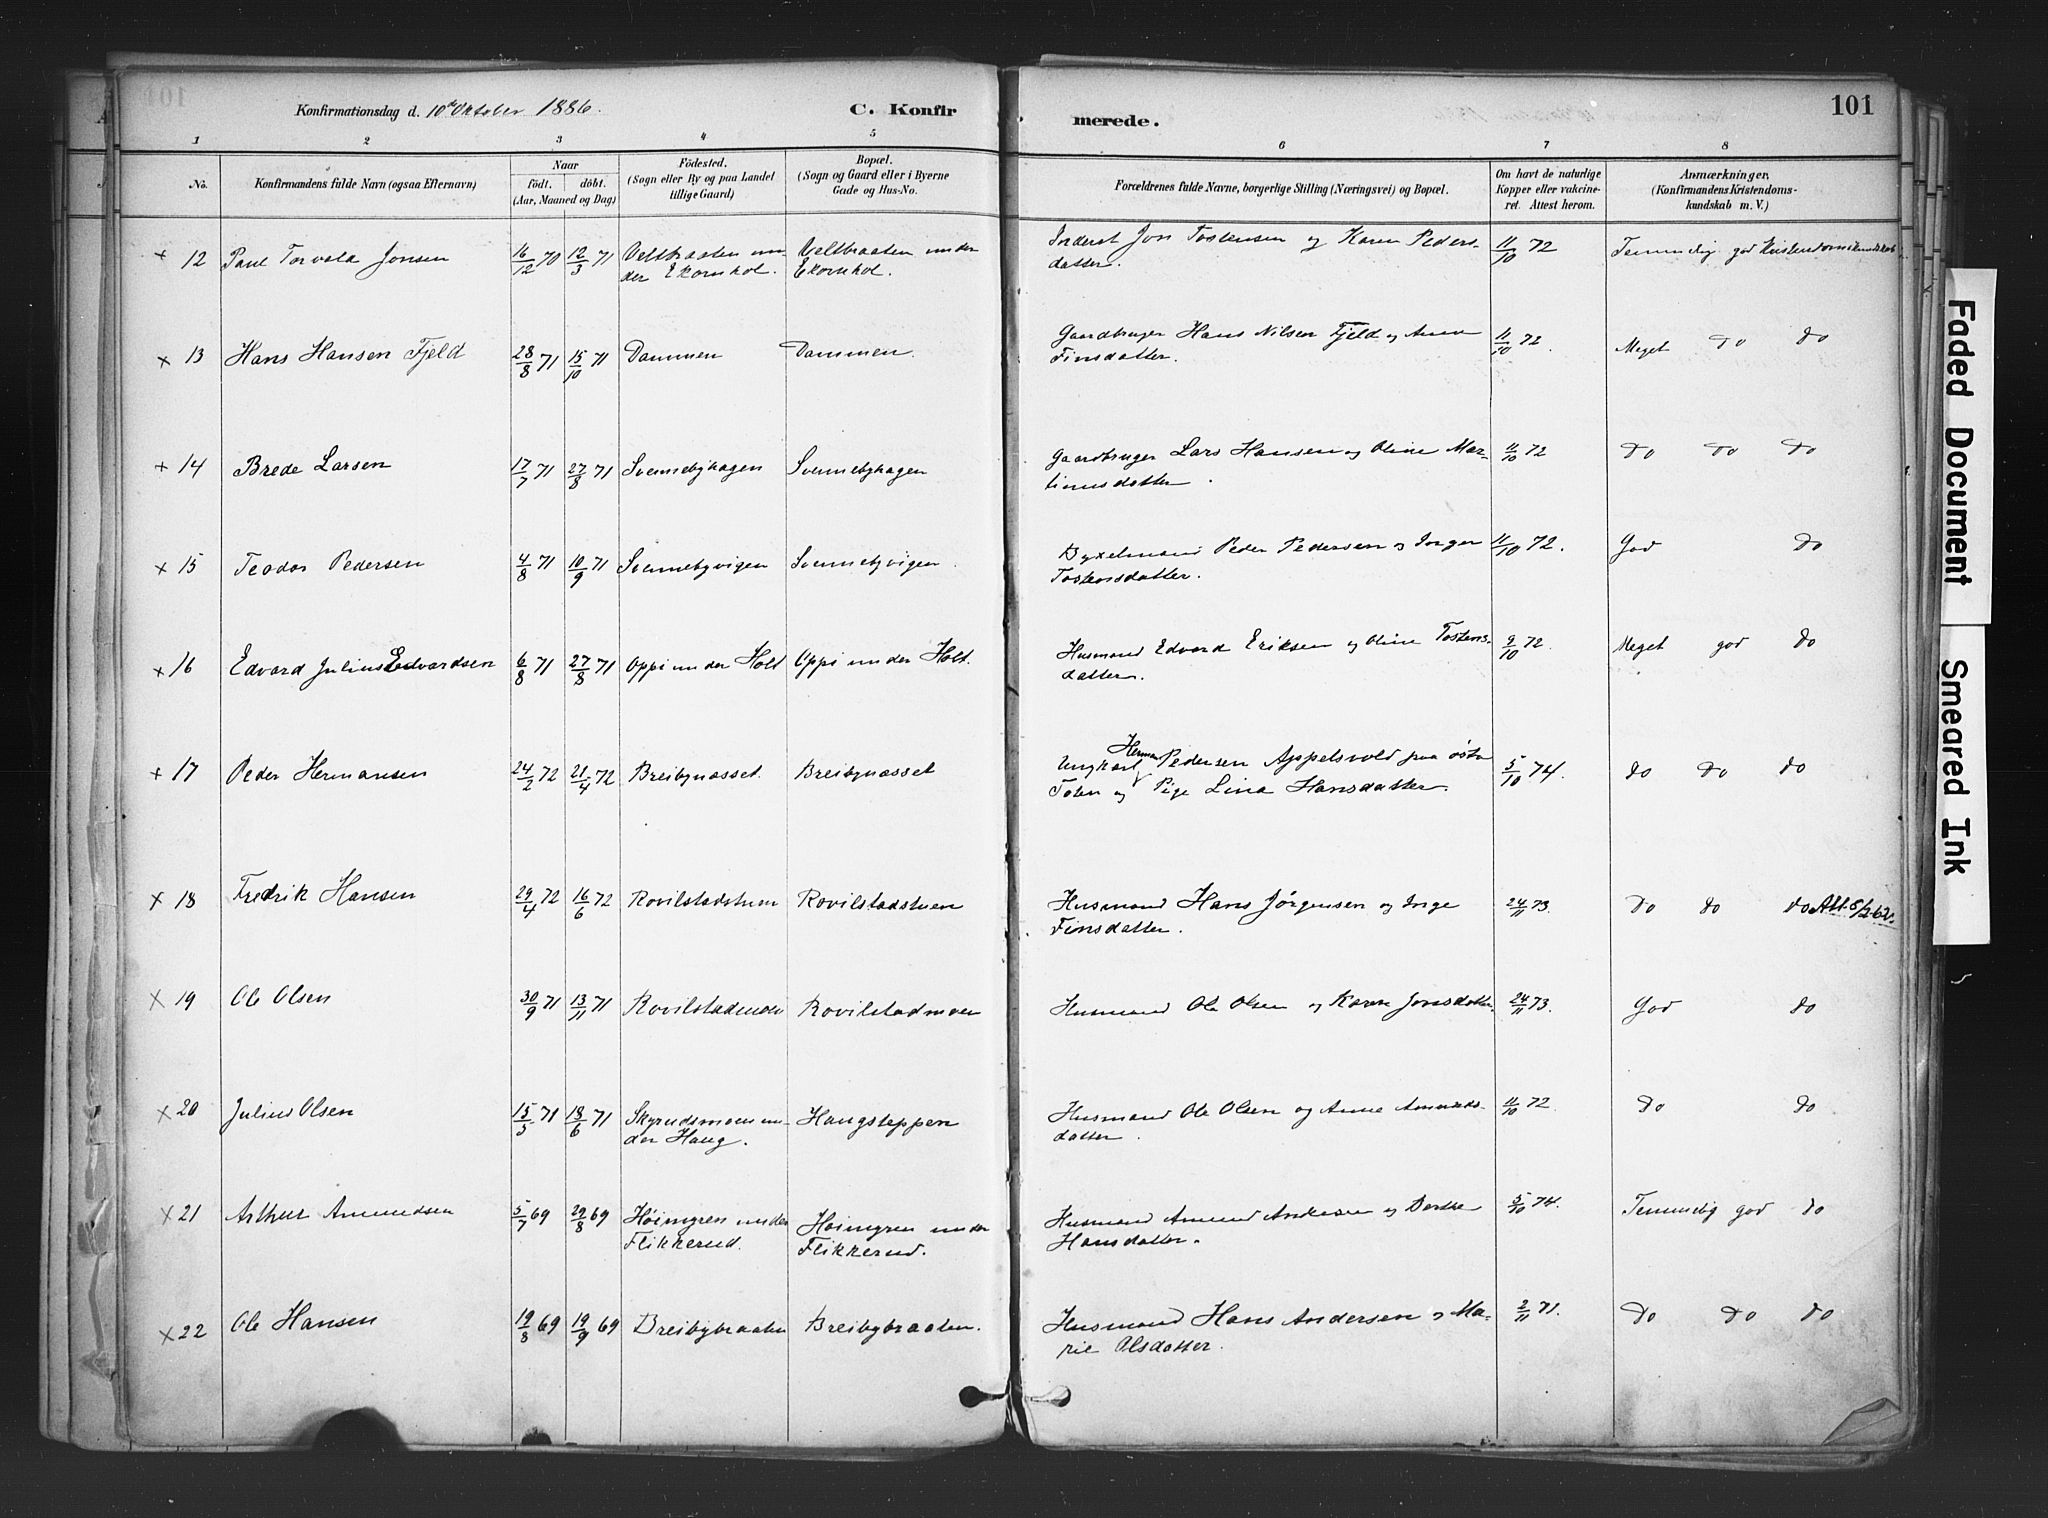 Konfirmationsdag d. 10de Oktober 1886. C. Konfir merede. 101
1 2 3 4 5 6 7 8
No. Konfirmandens fulde Navn (ogsaa Efternavn) Naar født. døbt. (Aar, Maaned og Dag) Födested. (Sogn eller By og paa Landet tillige Gaard) Bopæl. (Sogn og Gaard eller i Byerne Gade og Hus-No. Forældrenes fulde Navne, borgerlige Stilling (Næringsvei) og Bopæl. Om havt de naturlige Kopper eller vakcineret. Attest herom. Anmærkninger. (Konfirmandens Kristendomskundskab m. V.)
x 12 Paul Torvald Jonsen 16/12 70 12/3 71 Veltbraaten un- Veltbraaten under Inderst Jon Tostensen og Karen Peders- 11/10 72 Temmelig god Kristendomskundskab
der Ekornhol. Ekornhol. datter.
x 13 Hans Hansen Fjeld 28/8 71 15/10 71 Dammen Dammen. Gaardbruger Hans Nilsen Fjeld og Anne 11/10 72. Meget do do
Finsdatter.
x 14 Brede Larsen 17/7 71 27/8 71 Svennebyhagen Svennebyhagen Gaardbruger Lars Hansen og Oline Mar- 11/10 72 do do do
tinusdatter.
x 15 Teodor Pedersen 4/8 71 10/9 71 Svennebyvigen Svennebyvigen. Bygselmand Peder Pedersen og Inger 11/10 72. God do
Tostensdatter.
x 16 Edvard Julius Edvardsen 6/8 71 27/8 71 Oppi under Holt Oppi under Holt. Husmand Edvard Eriksen og Oline Tostens- 9/10 72. Meget god do
datter.
x 17 Peder Hermansen 24/2 72 21/4 72 Breibynæsset. Breibynæsset Ungkarl Herman Pedersen Appelsvold paa østr 5/10 74. do do do
Toten og Pige Lina Hansdatter.
x 18 Fredrik Hansen 29/4 72 16/6 72 Rovilstadstuen Rovilstadstuen Husmand Hans Jørgensen og Inge 24/11 73. do do do Att. 5/2 62.
Finsdatter.
x 19 Ole Olsen 30/9 71 13/11 71 Rovilstad Rovilstadmoen Husmand Ole Olsen og Karen Jonsdatter. 24/11 73. God do
x 20 Julius Olsen 15/5 71 18/6 71 Skyrudsmoen un- Haugsteppen Husmand Ole Olsen og Anne Amunds- 11/10 72. do do
der Haug. datter.
x 21 Arthur Amundsen 5/7 69 29/8 69 Høimyren under Høimyren under Husmand Amund Andersen og Dorthe 5/10 74. Temmelig god do
Flikkerud. Flikkerud. Hansdatter.
x 22 Ole Hansen 19/8 69 19/9 69 Breibybraaten Breibybraaten. Husmand Hans Andersen og Ma- 2/11 71. do do do
rie Olsdatter.
Faded Document Smeared Ink